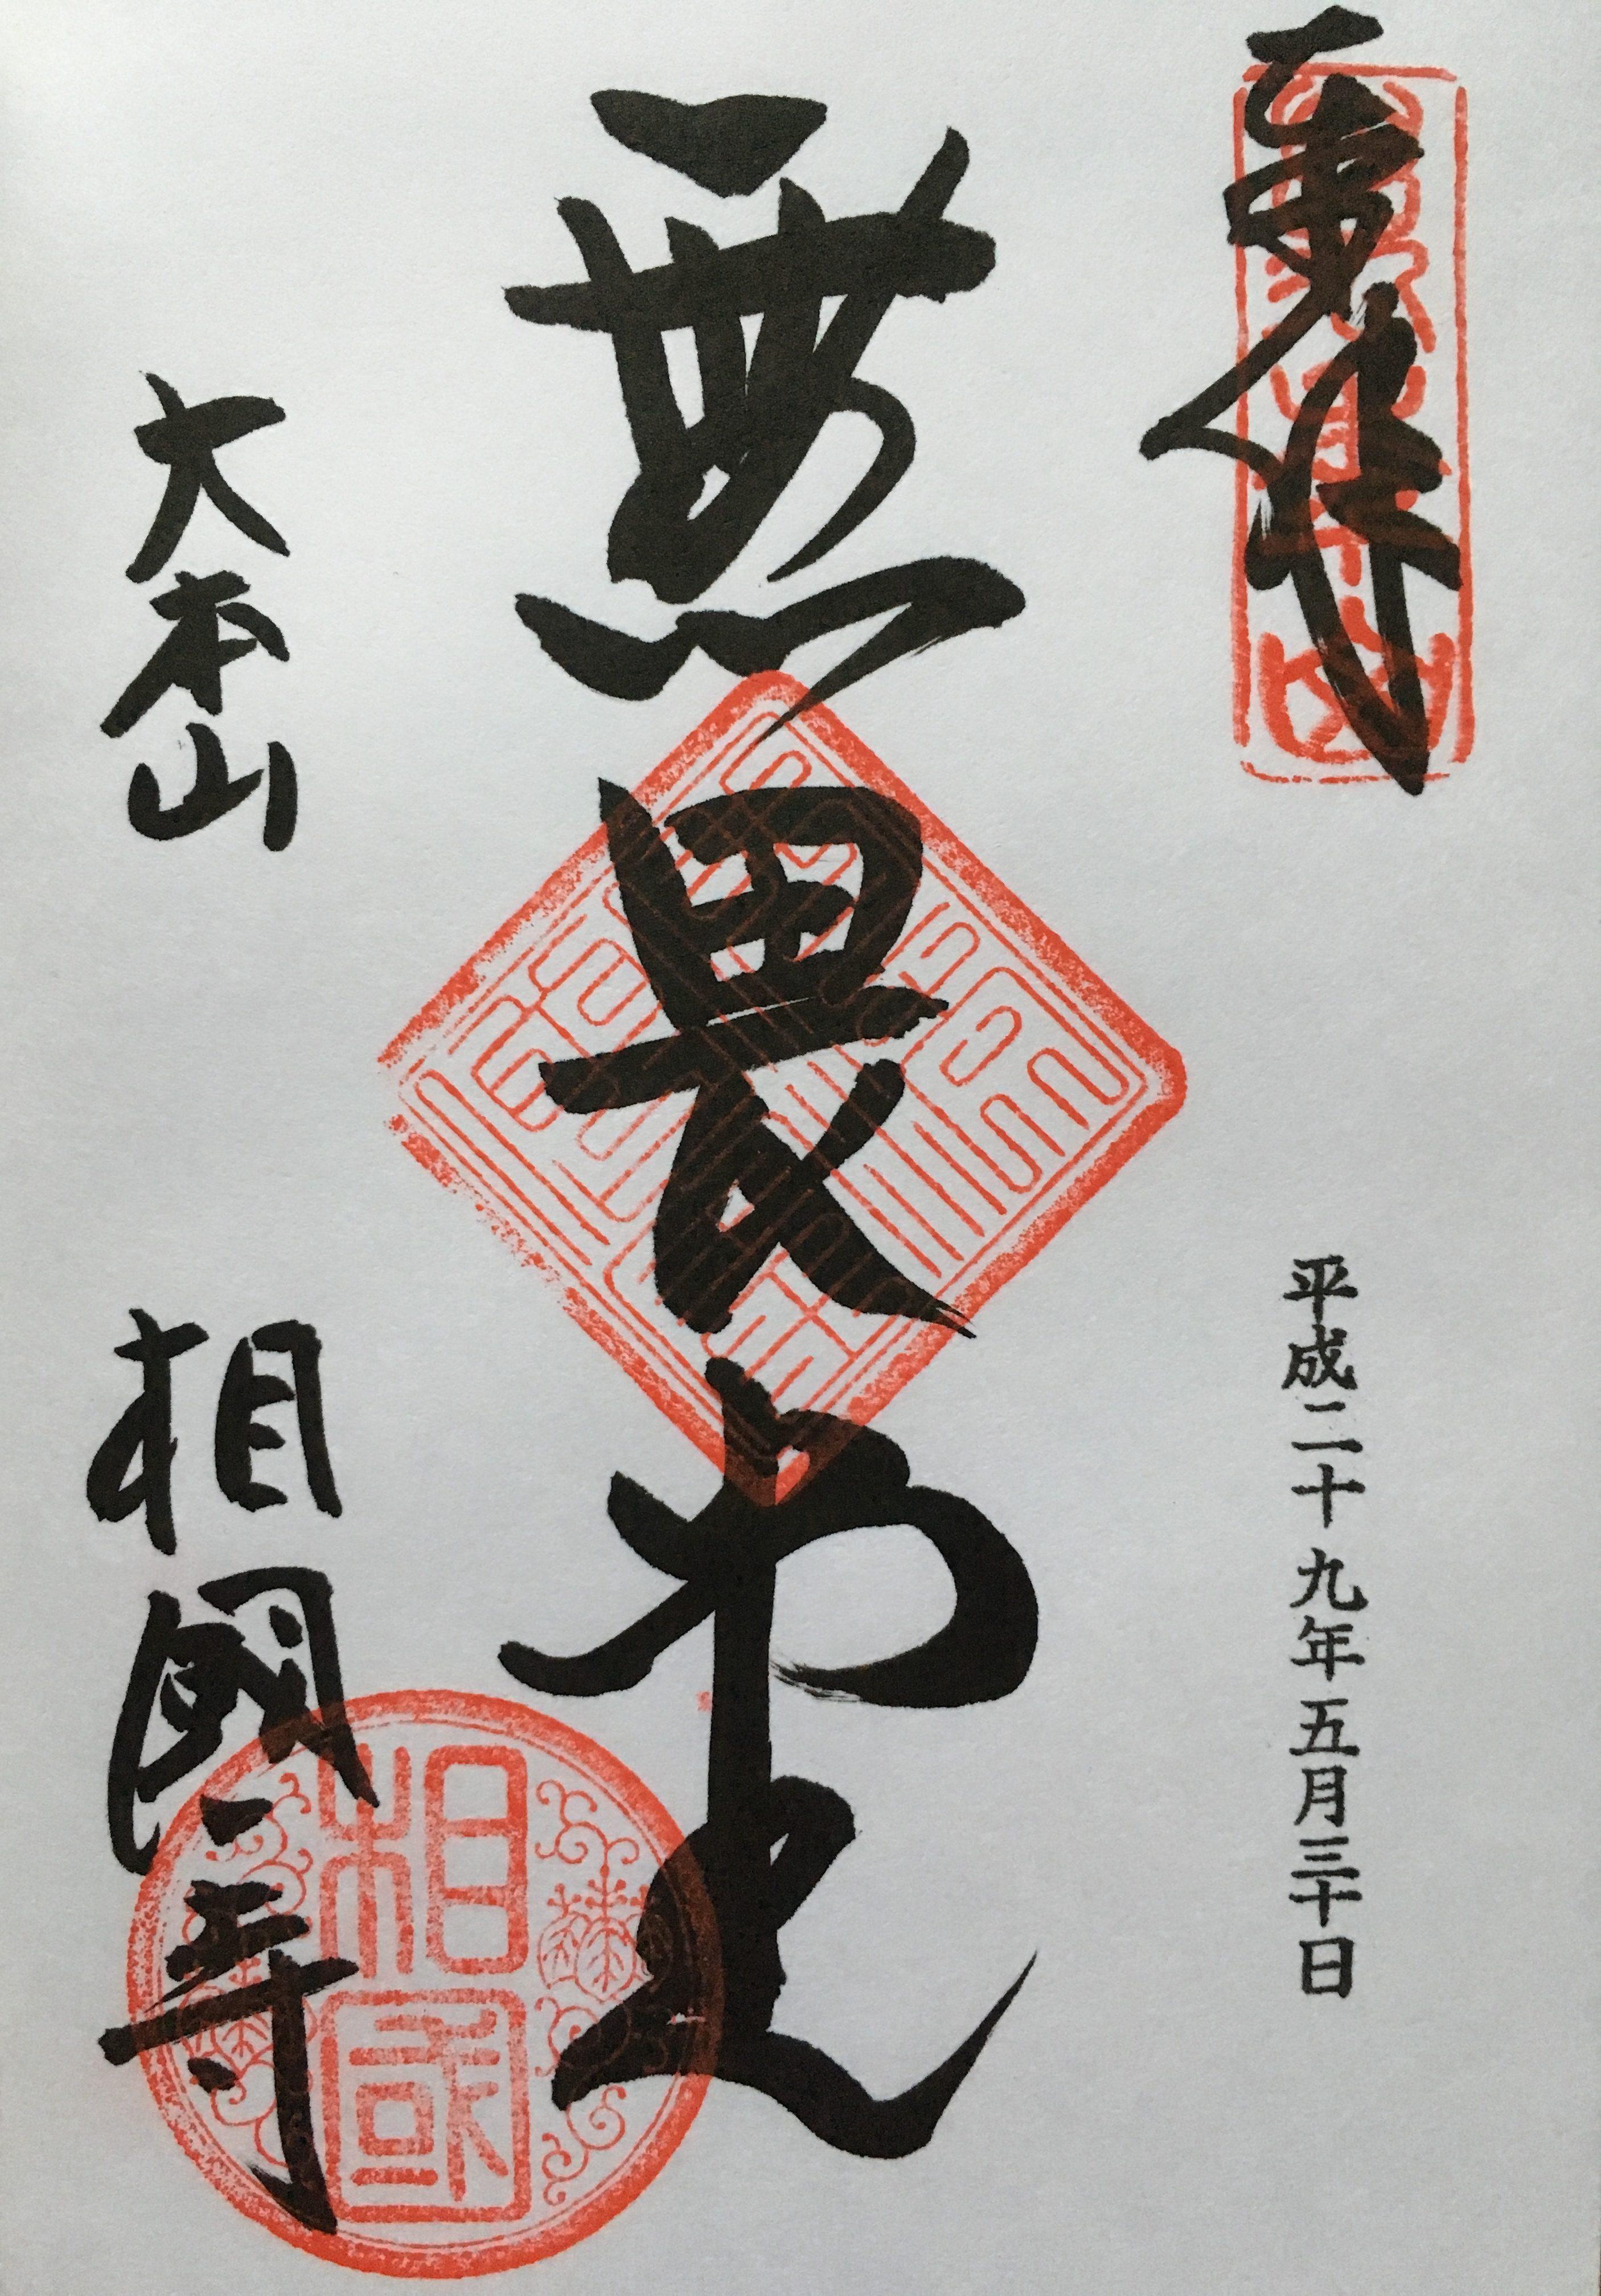 奉拝
平成二十九年五月三十日
無畏堂
大本山
相國寺
相國